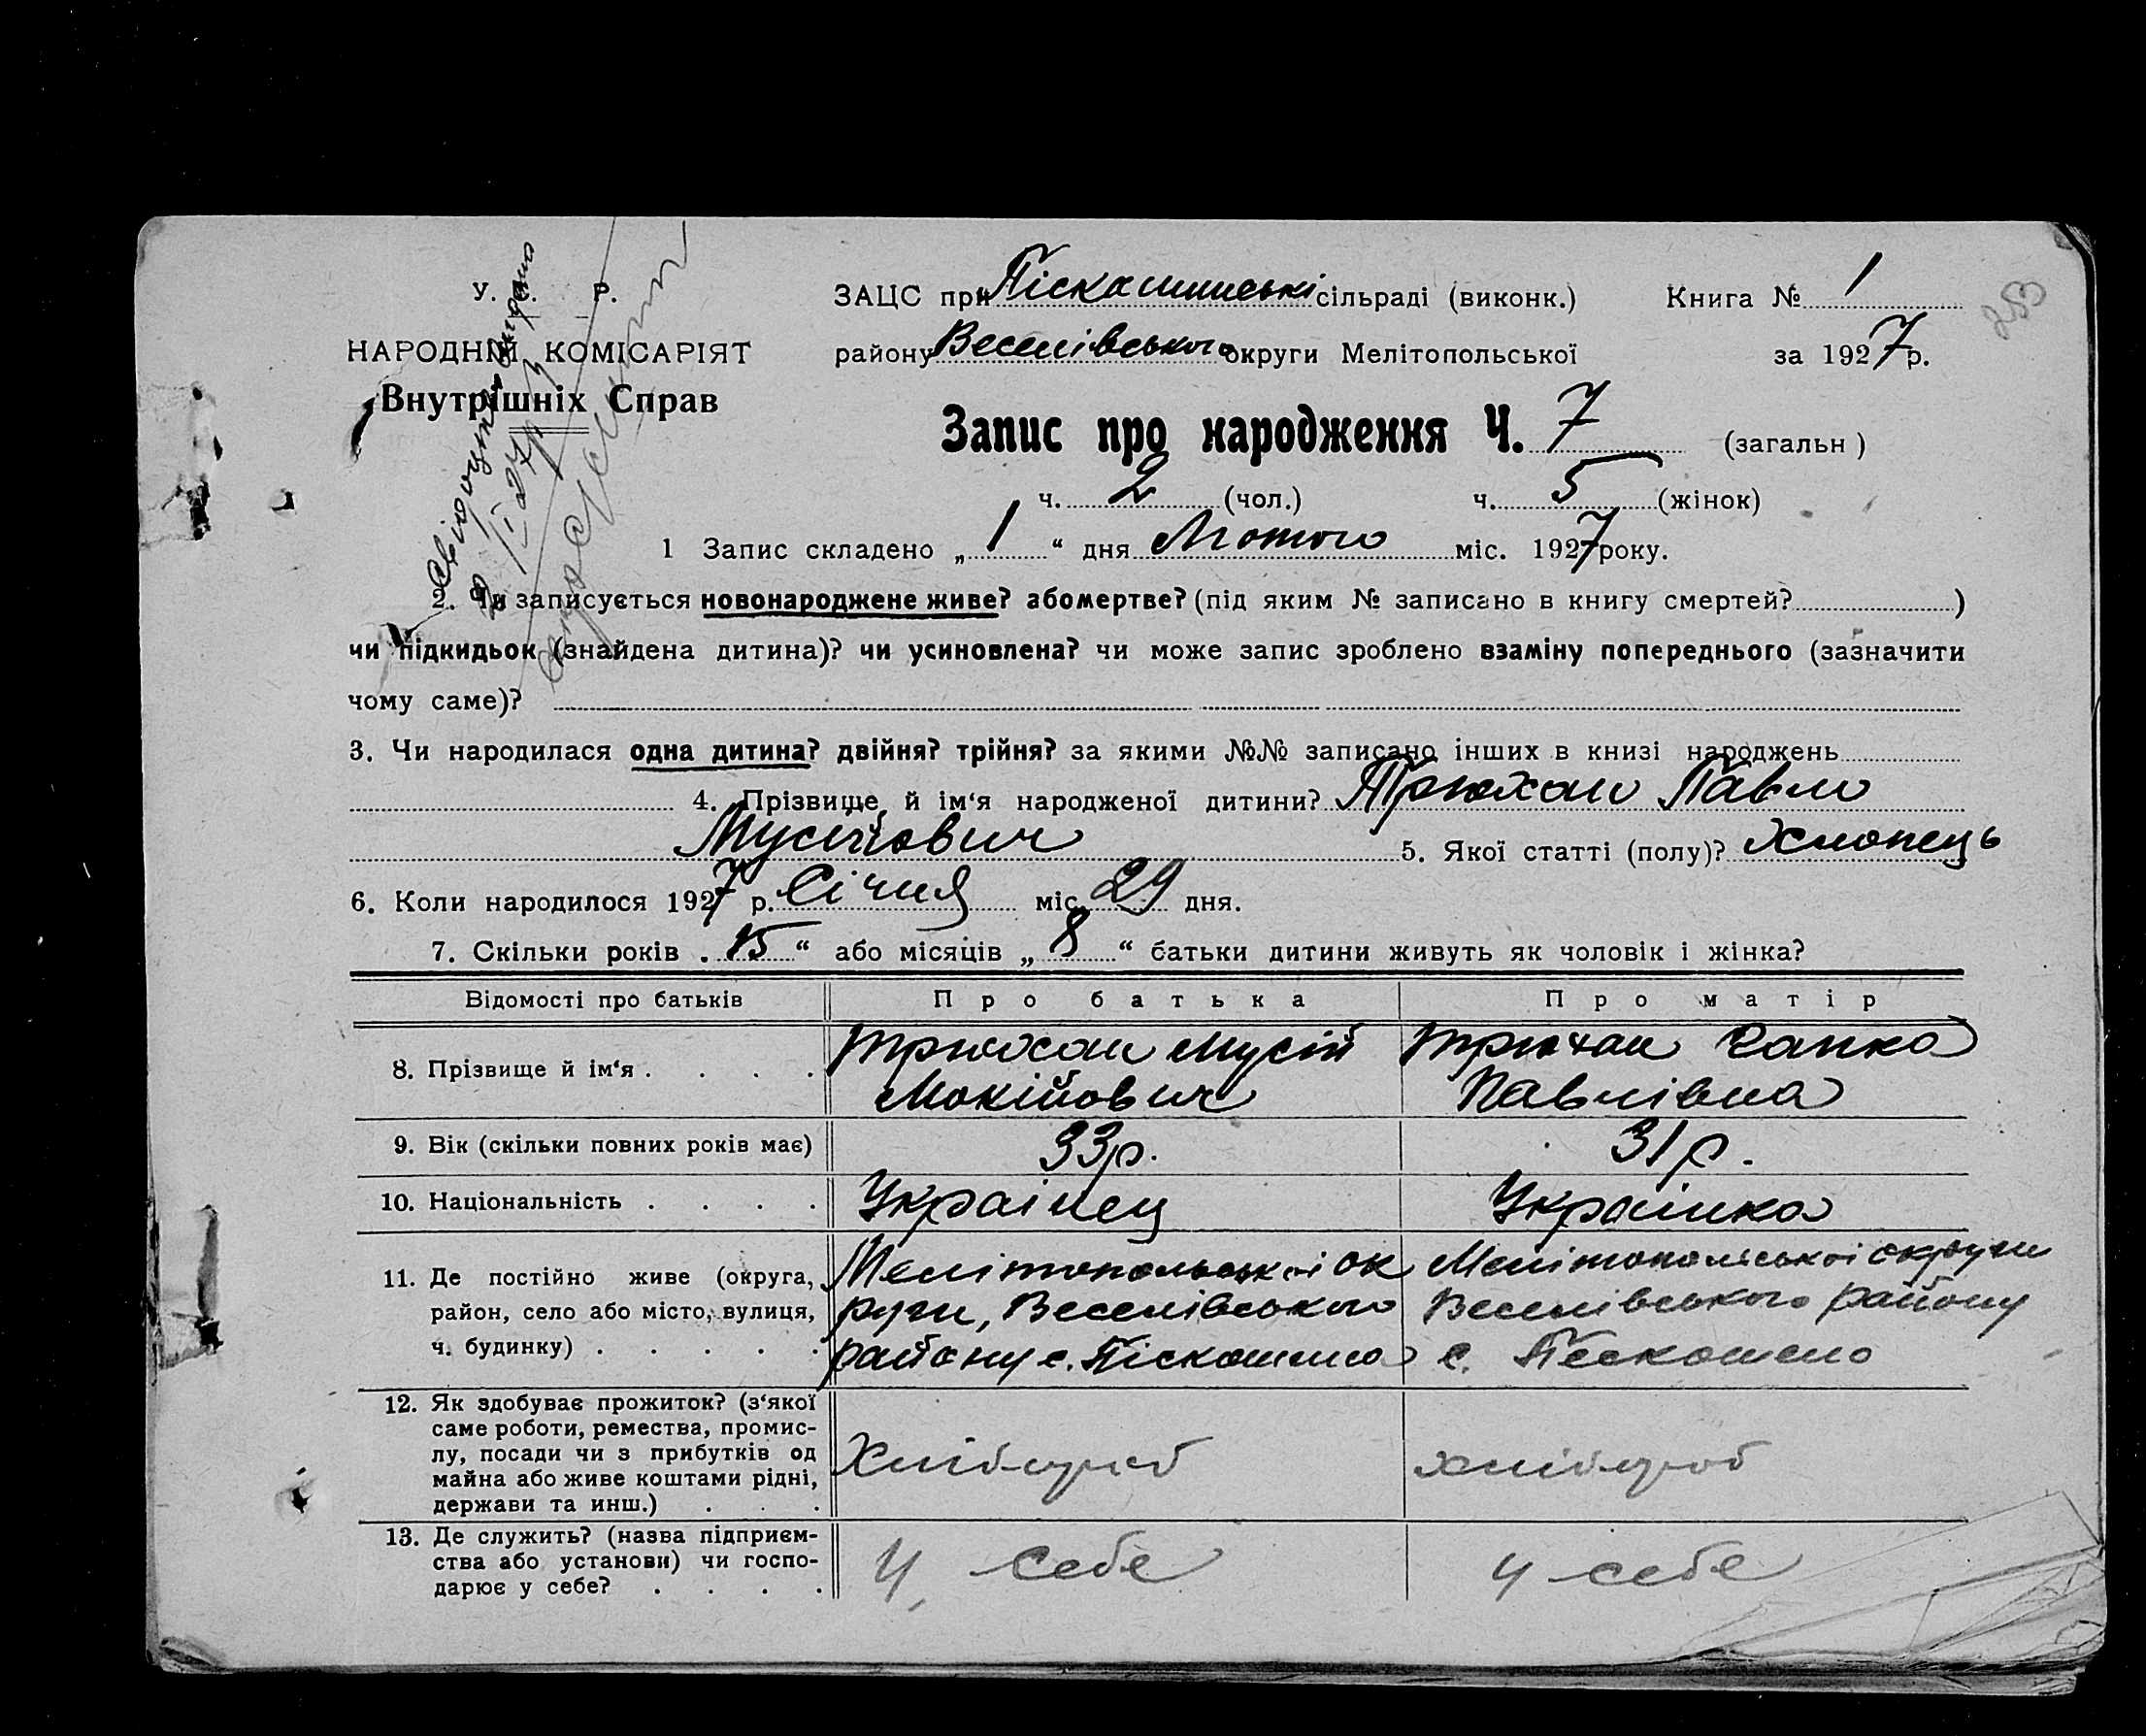 У. С. Р.
НАРОДНІЙ КОМІСАРІЯТ
Внутрішніх Справ
ЗАЦС при Піскашинські сільраді (виконк.) Книга № 1
253
району Веселівського округи Мелітопольської за 1927 р.
Запис про народження Ч. 7 (загальн)
ч. 2 (чол.) ч. 5 (жінок)
1 Запис складено „ 1 “ дня Лютого міс. 1927 року.
2. Чи записується новонароджене живе? або мертве? (під яким № записано в книгу смертей? )
чи підкидьок (знайдена дитина)? чи усиновлена? чи може запис зроблено взаміну попереднього (зазначити
чому саме)?
3. Чи народилася одна дитина? двійня? трійня? за якими №№ записано інших в книзі народжень
4. Прізвище й ім‘я народженої дитини? Трюхан Павло
Мусійович 5. Якої статті (полу)? Хлопець
6. Коли народилося 1927 р. Січня міс. 29 дня.
7. Скільки років . 15 “ або місяців „ 8 “ батьки дитини живуть як чоловік і жінка?
Відомості про батьків Про батька Про матір
8. Прізвище й ім‘я . . . . Трюхан Мусій Трюхан Ганка
Мокійович Павлівна
9. Вік (скільки повних років має) 33р. 31р.
10. Національність . . . . Украінец Украінка
11. Де постійно живе (округа, Мелітопольськоі ок Мелітопольськоі округи
район, село або місто, вулиця, руги, Веселівського Веселівського району
ч. будинку) . . . . . району с. Піскошино с. Пескошено
12. Як здобуває прожиток? (з‘якої
саме роботи, ремества, промис-
лу, посади чи з прибутків од Хлібороб хлібороб
майна або живе коштами рідні,
держави та инш.) . . .
13. Де служить? (назва підприєм-
ства або установи) чи госпо- У себе у себе
дарює у себе? . . . .